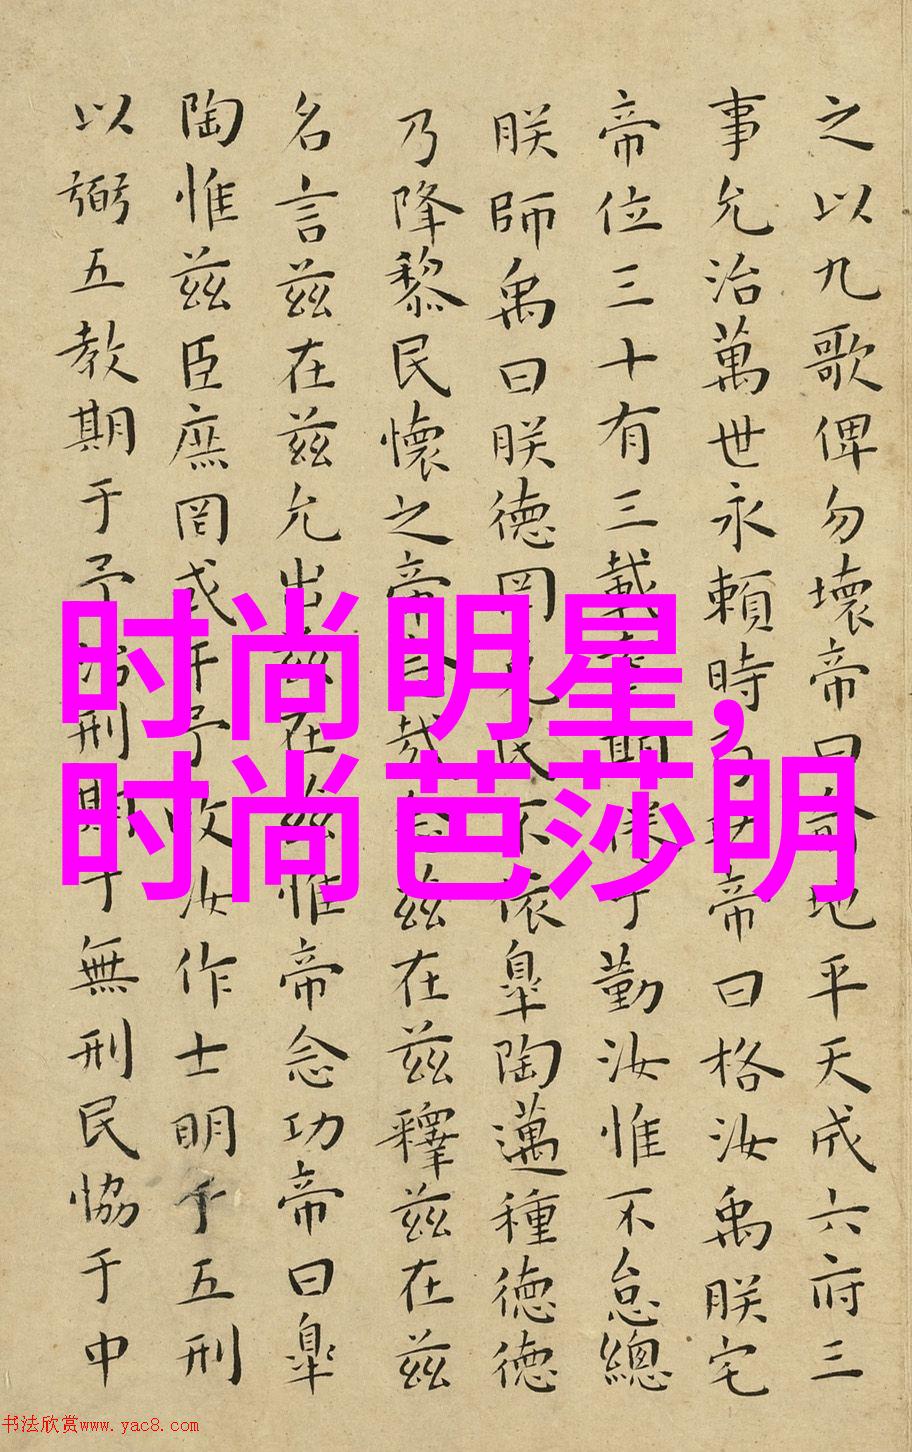 之以九歌俾勿壞帝曰俞地平天成六府三
事允治萬世永賴時乃功帝曰格汝禹朕宅
帝位三十有三載耄期倦于勤汝惟不怠總
朕師禹曰朕德罔克民不依臯陶邁種德德
乃降黎民懷之帝念哉念茲在茲釋茲在茲
名言茲在茲允出茲在茲惟帝念功帝曰臯
陶惟茲臣庶罔或干予汝作士明于五刑
以弼五教期于予治刑期于無刑民恊于中
时尚明星，
时尚芭莎明
书法欣赏www.yac8.com